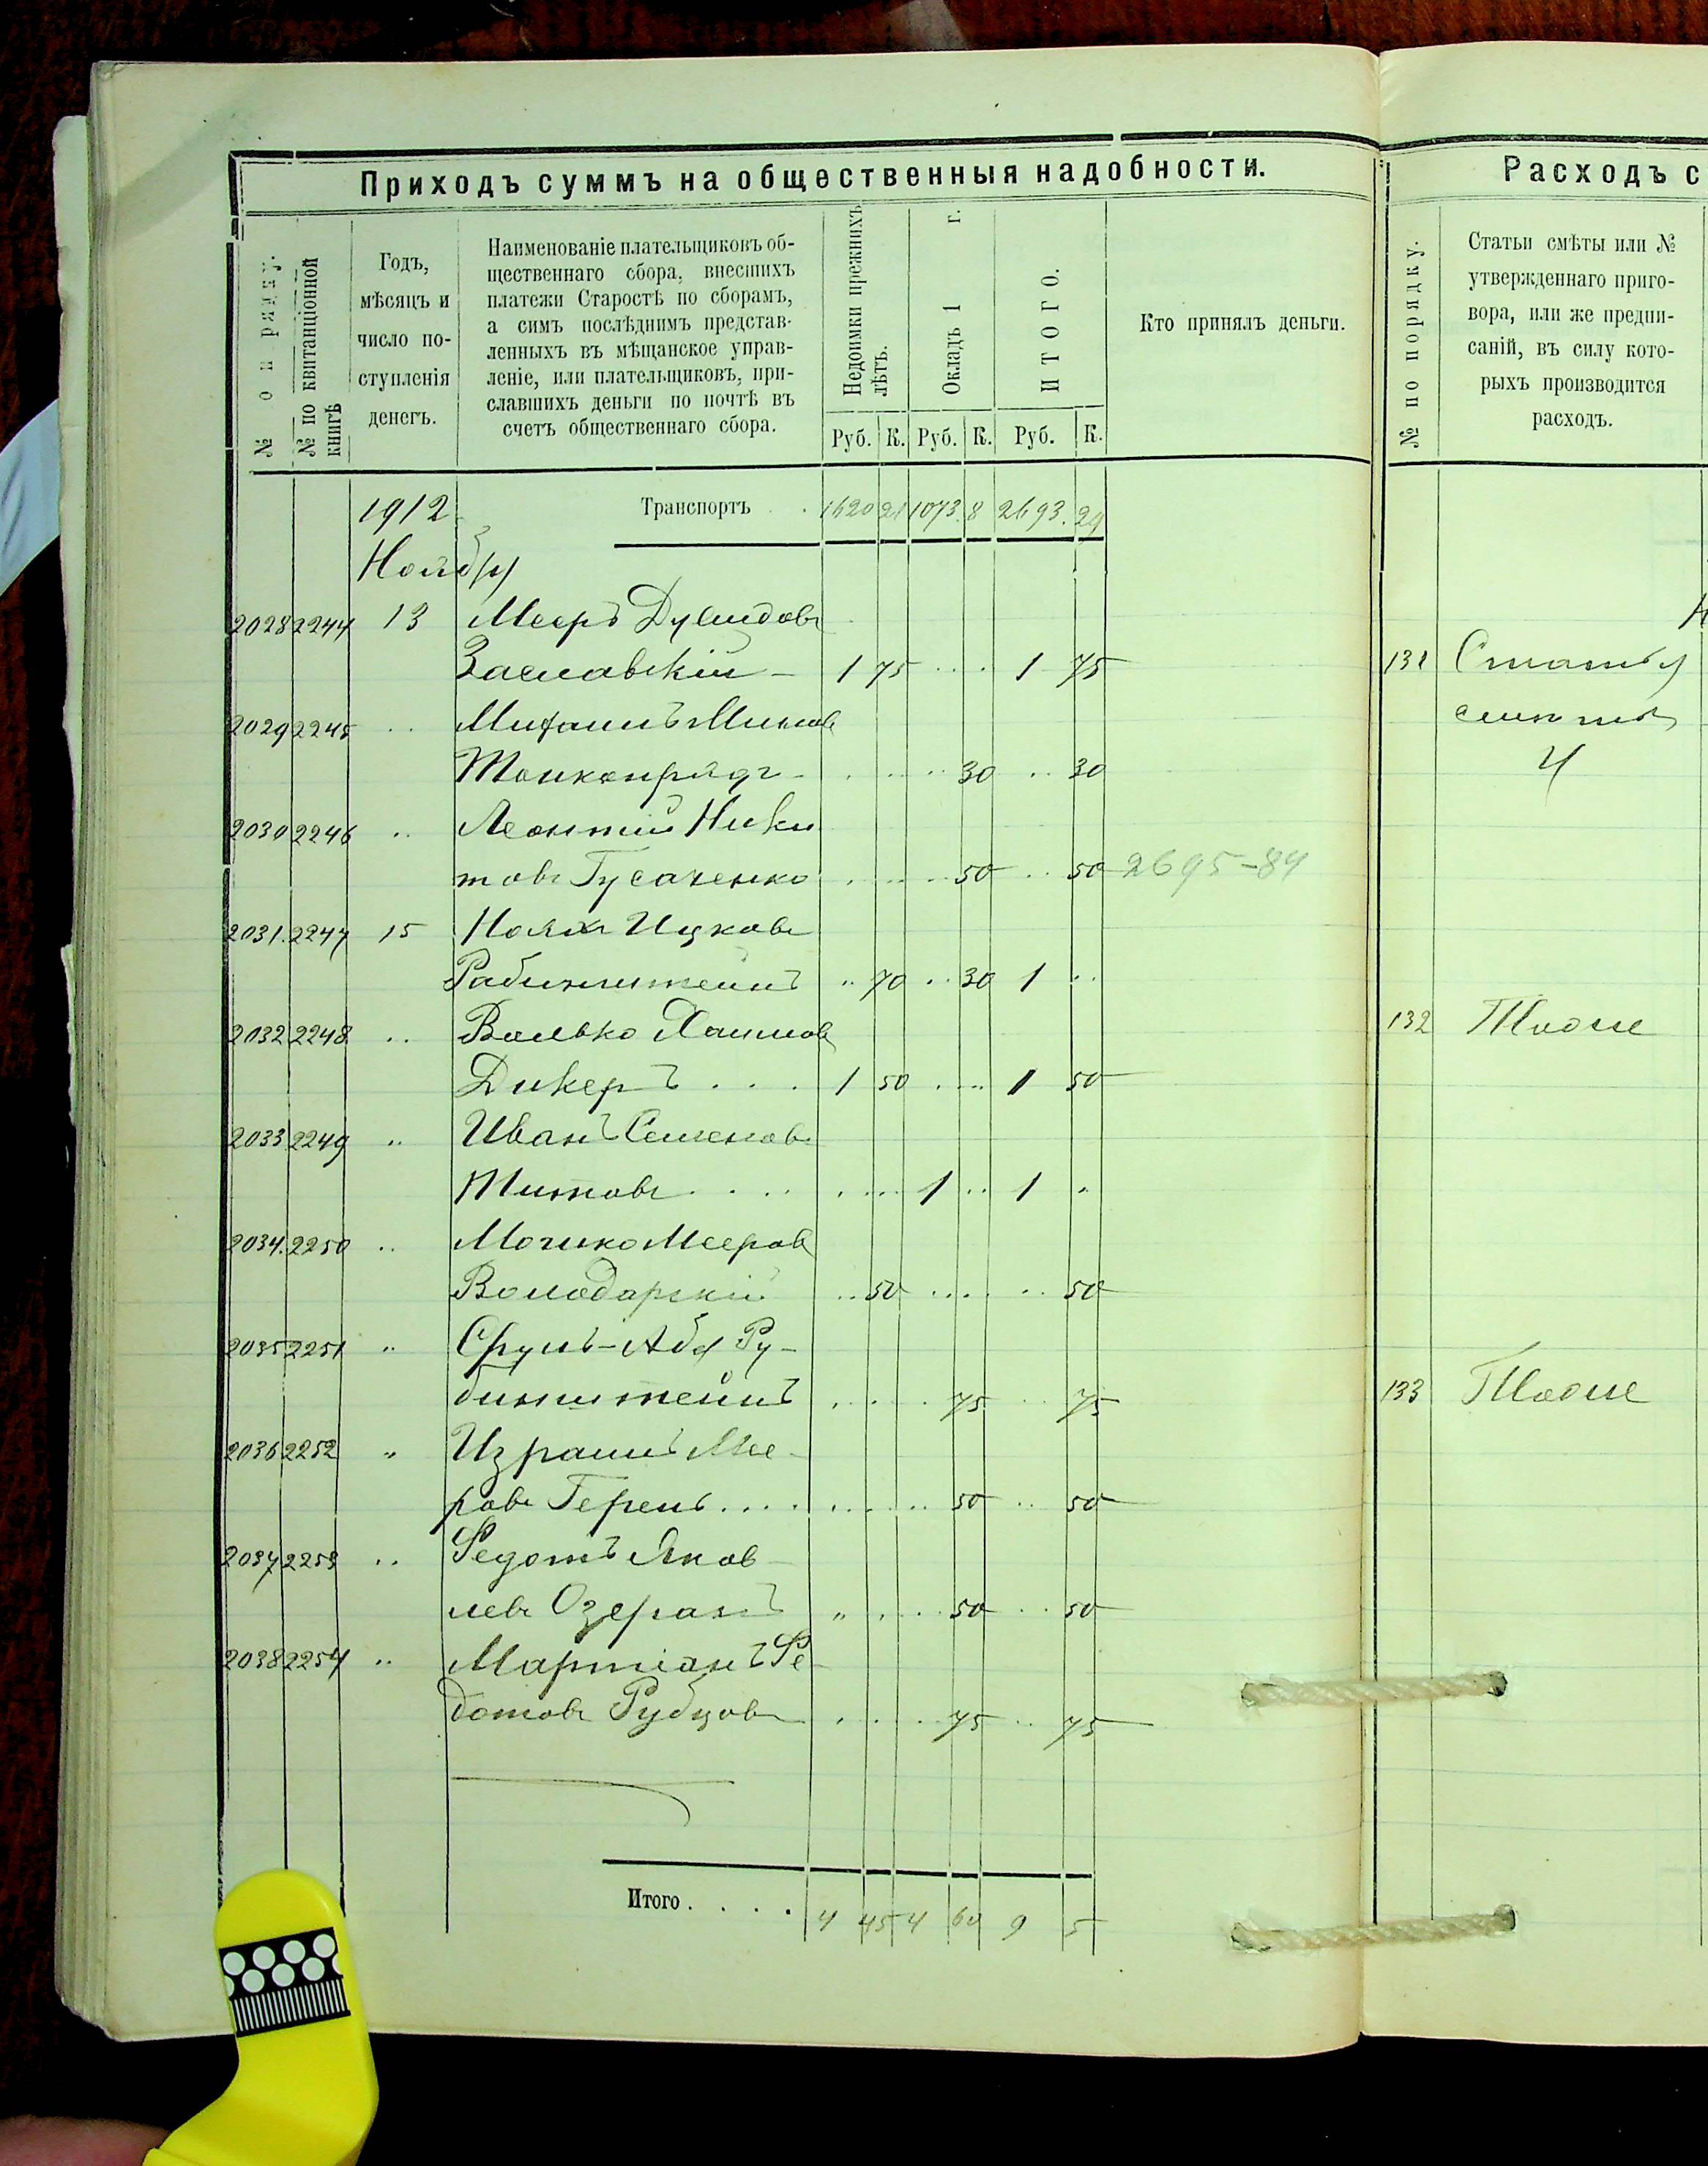 Приходъ суммъ на общественныя надобности.
№ по рядку.
№ по квитанціонной книгѣ
Годъ,
мѣсяцъ и
число по-
ступленія
денегъ.
Наименованіе плательщиковъ об-
щественнаго сбора, внесшихъ
платежи Старостѣ по сборамъ,
а симъ послѣднимъ представ-
ленныхъ въ мѣщанское управ-
леніе, или плательщиковъ, при-
славшихъ деньги по почтѣ въ
счетъ общественнаго сбора.
Недоимки прежнихъ
лѣтъ.
Окладъ 1 г.
ИТОГО.
Кто принялъ деньги.
Руб. К. Руб. К. Руб. К.
1912 Транспортъ . . 1620 21 1073. 8 2693. 29
Ноябр
2028 2244 13 Мееръ
Заславскій - 1 75 .. .. 1 75
2029 2245 ..
.. .. .. 30 .. 30
2030 2246 .. Леонтій Ники
товъ Гусаченко .. .. .. 50 .. 50 2695-84
2031. 2247 15 Ноях Ицковъ
Рабинштейнъ .. 70 .. 30 1 ..
2032 2248 .. Волько Хаимов
Дикеръ . . . 1 50 .. .. 1 50
2033 2249 .. Иванъ Семеновъ
Титовъ . . . . .. .. 1 .. 1 .
2034. 2250 .. Мошко Мееров
Володарскій .. 50 .. .. .. 50
2035 2251 .. Сруль-Аба Ру-
бинштейнъ .. .. .. 75 .. 75
2036 2252 .. Израиль Мее-
ровъ Герень . . . . .. .. .. 50 .. 50
2037 2253 .. Федотъ Яков
левъ Озеранъ .. .. .. 50 .. 50
2038 2254 .. Мартіанъ Фе
дотовъ Рубцовъ .. .. .. 75 .. 75
Итого . . . . 4 45 4 60 9 5
Расходъ с
№ по порядку.
Статьи смѣты или №
утвержденнаго приго-
вора, или же предпи-
саній, въ силу кото-
рыхъ производится
расходъ.
131 Статья
смѣты
4
132 Тоже
133 Тоже